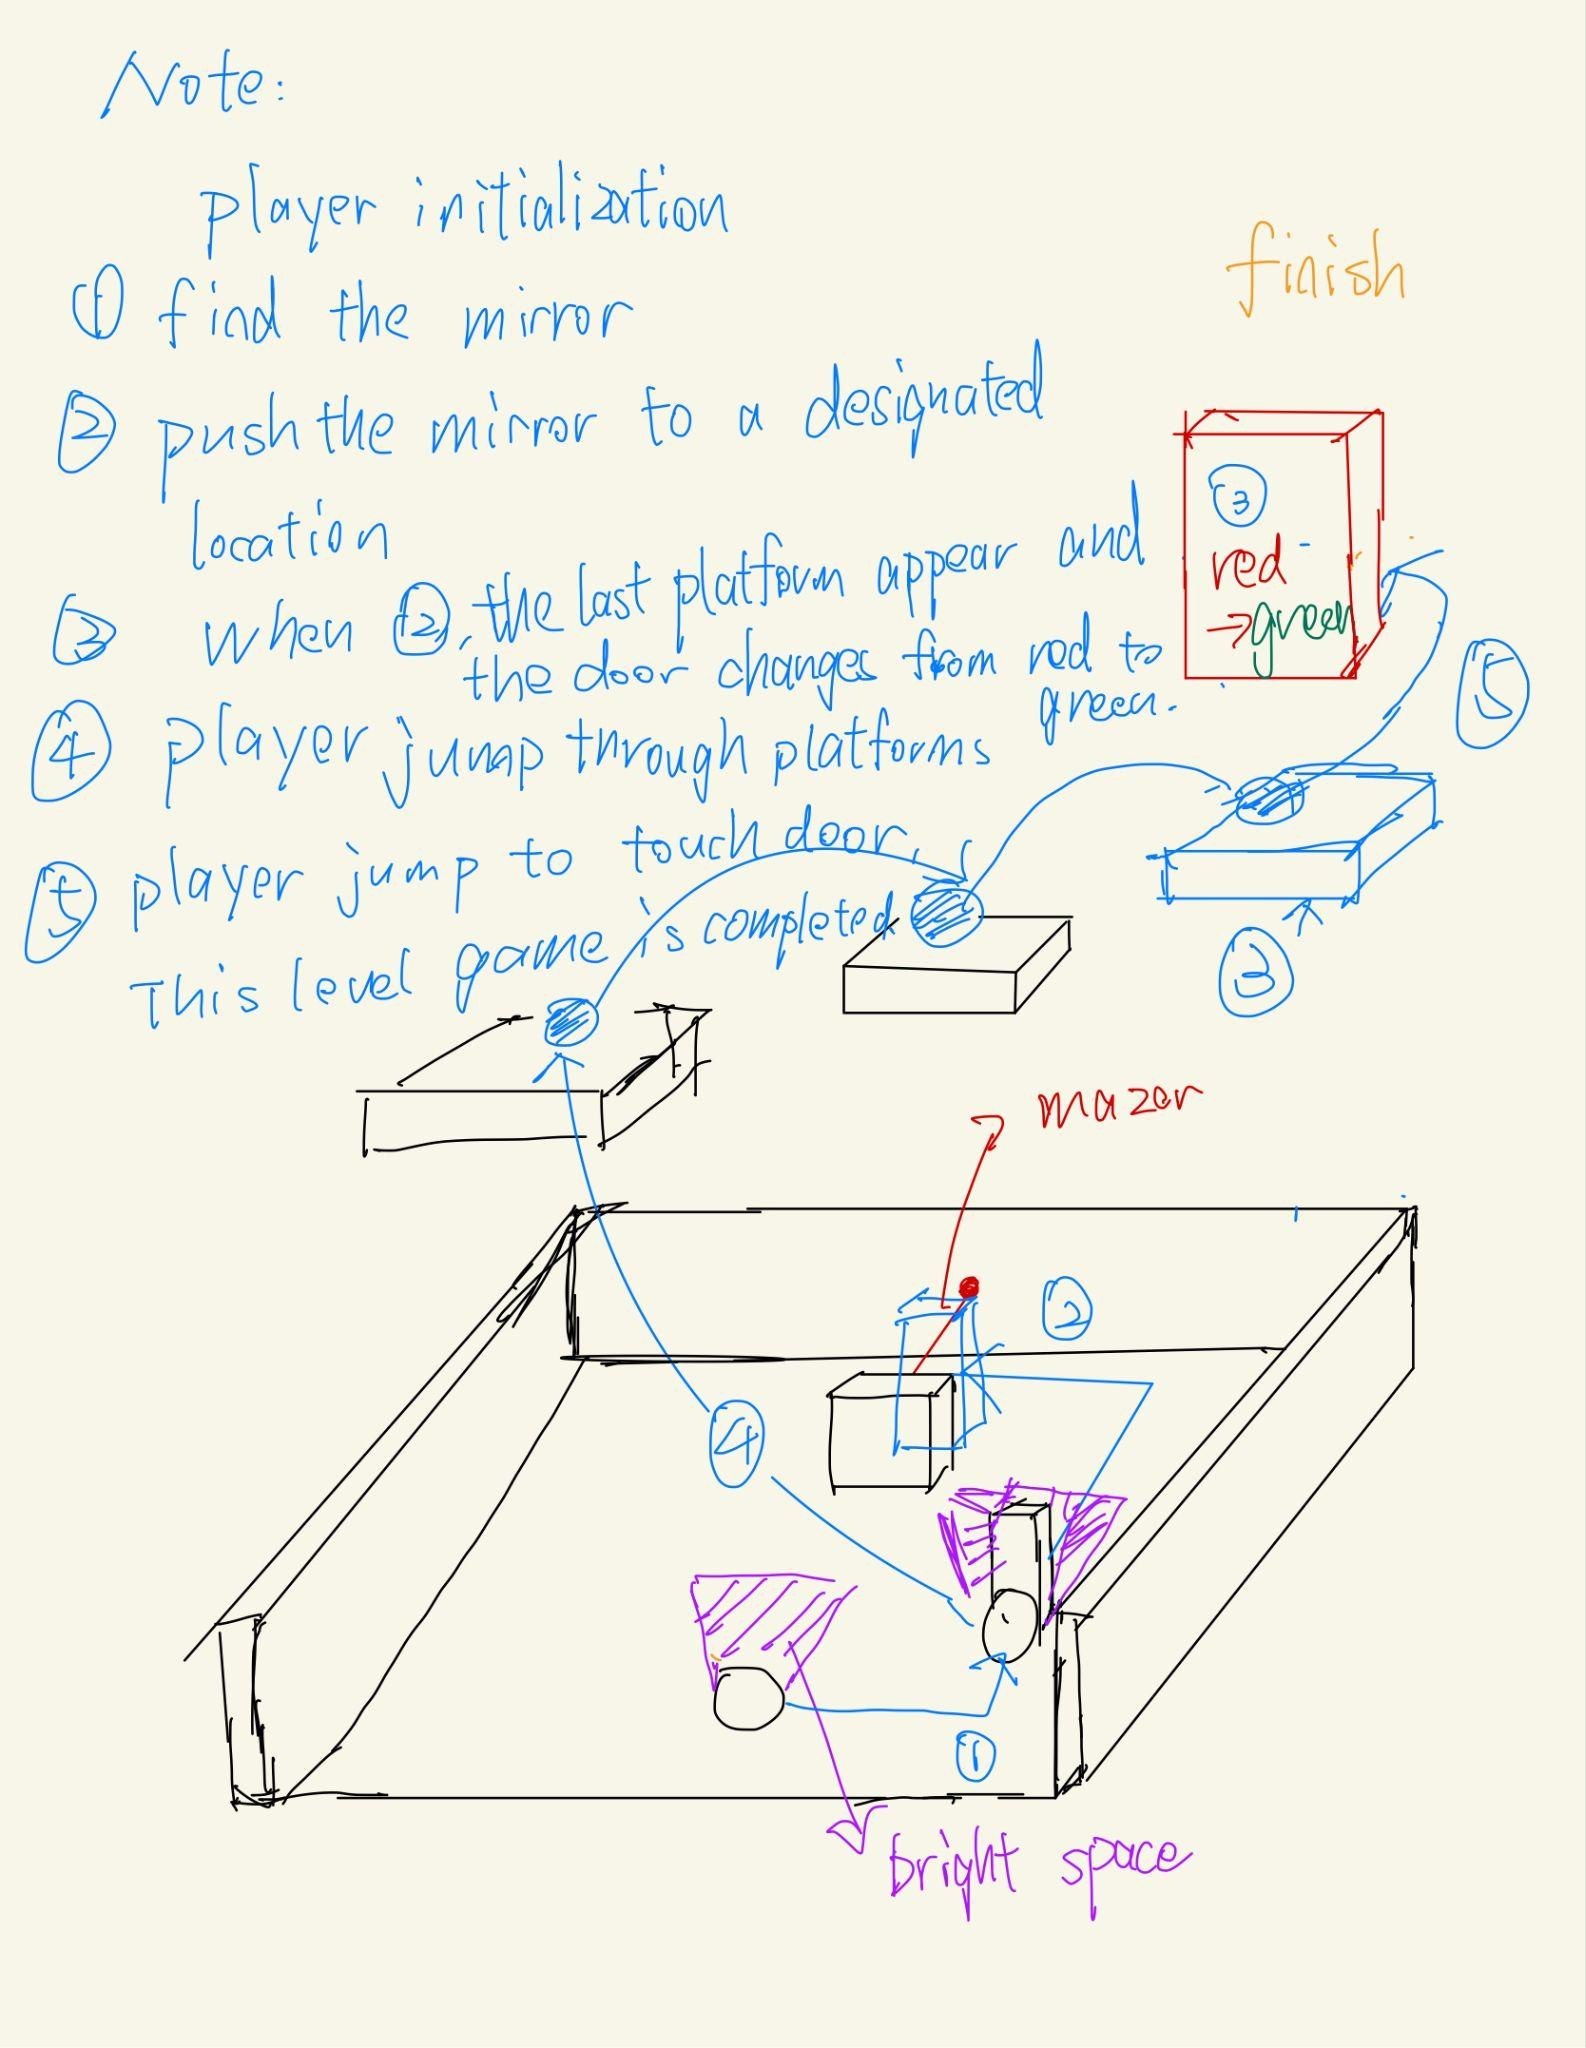 Note:
player initialization
① find the mirror
② push the mirror to a designated
location
③ when ②, the last platform appear and
the door changes from red to
green.
④ player jump through platforms
⑤ player jump to touch door,
This level game is completed
finish
③
red
→green
⑤
③
mazer
②
④
①
bright space